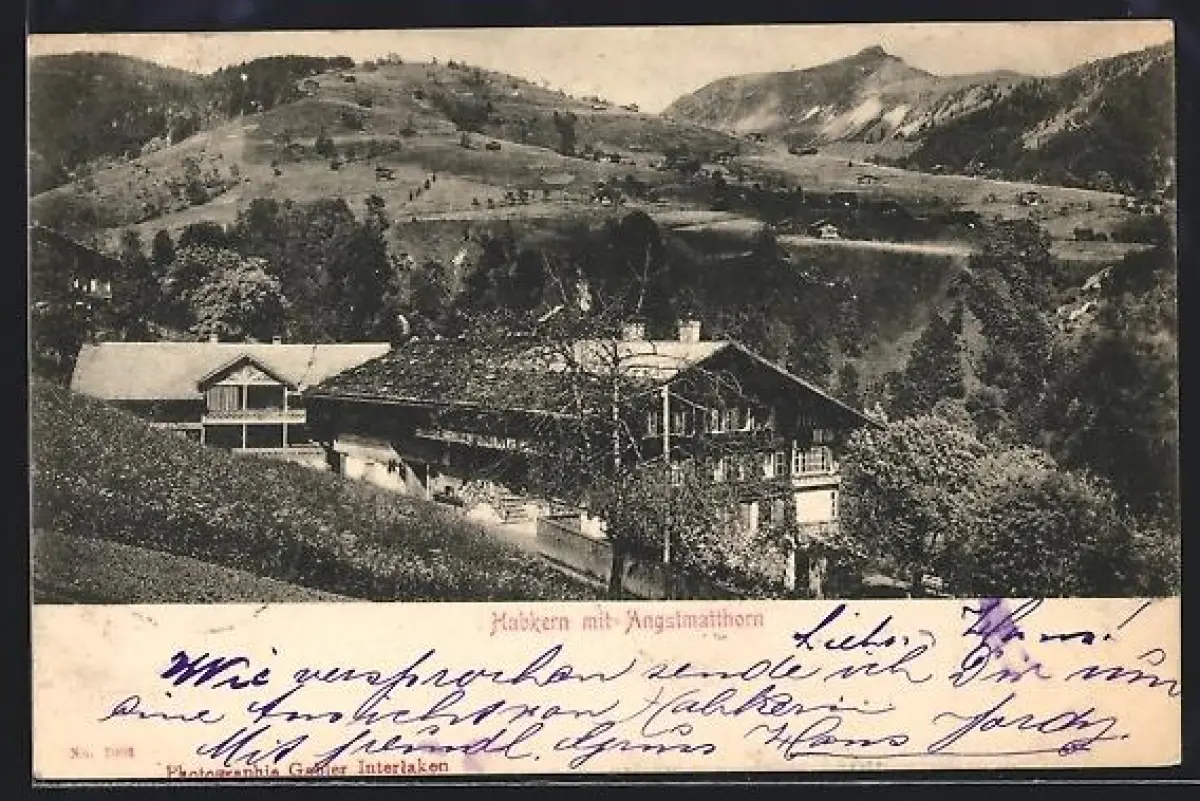 Habkern mit Angstmatthorn
Liebs. Hans!
Wie versprochen sende ich Dir nun
eine Ansicht von Habkern
Mit freundl. Grüss Hans
Photographie Gabler Interlaken